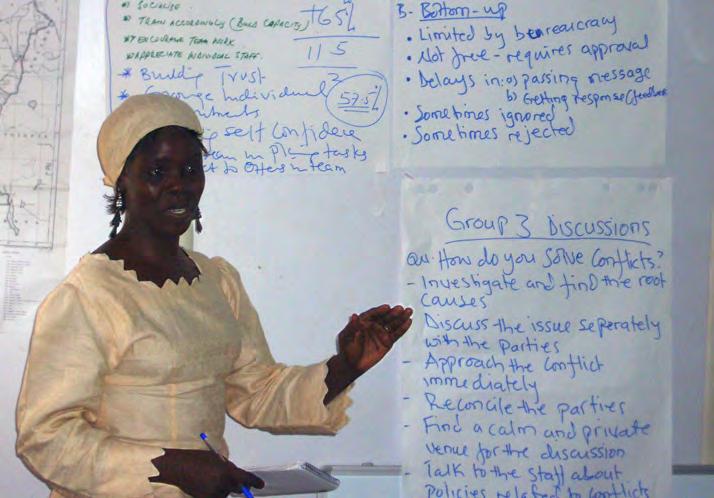 SOCIALISE
TRAIN ACCORDINGLY (BUILD CAPACITY)
ENCOURAGE TEAM WORK
APPRECIATE INDIVIDUAL STAFF.
* Building Trust
* Individual
self Confidence
in tasks
to others in team
+65%
115
57.5%
2
B- Bottom-up
• Limited by beaureacracy
• Not free - requires approval
• Delays in: a) passing message
b) Getting response (feedback
• Sometimes ignored
• Sometimes rejected
Group 3 Discussions
Qu: How do you solve conflicts?
- Investigate and find the root
causes
Discuss the issue seperately
with the parties
- Approach the conflict
immediately
- Reconcile the parties
- Find a calm and private
venue for the discussion
- Talk to the staff about
policies related to conflicts